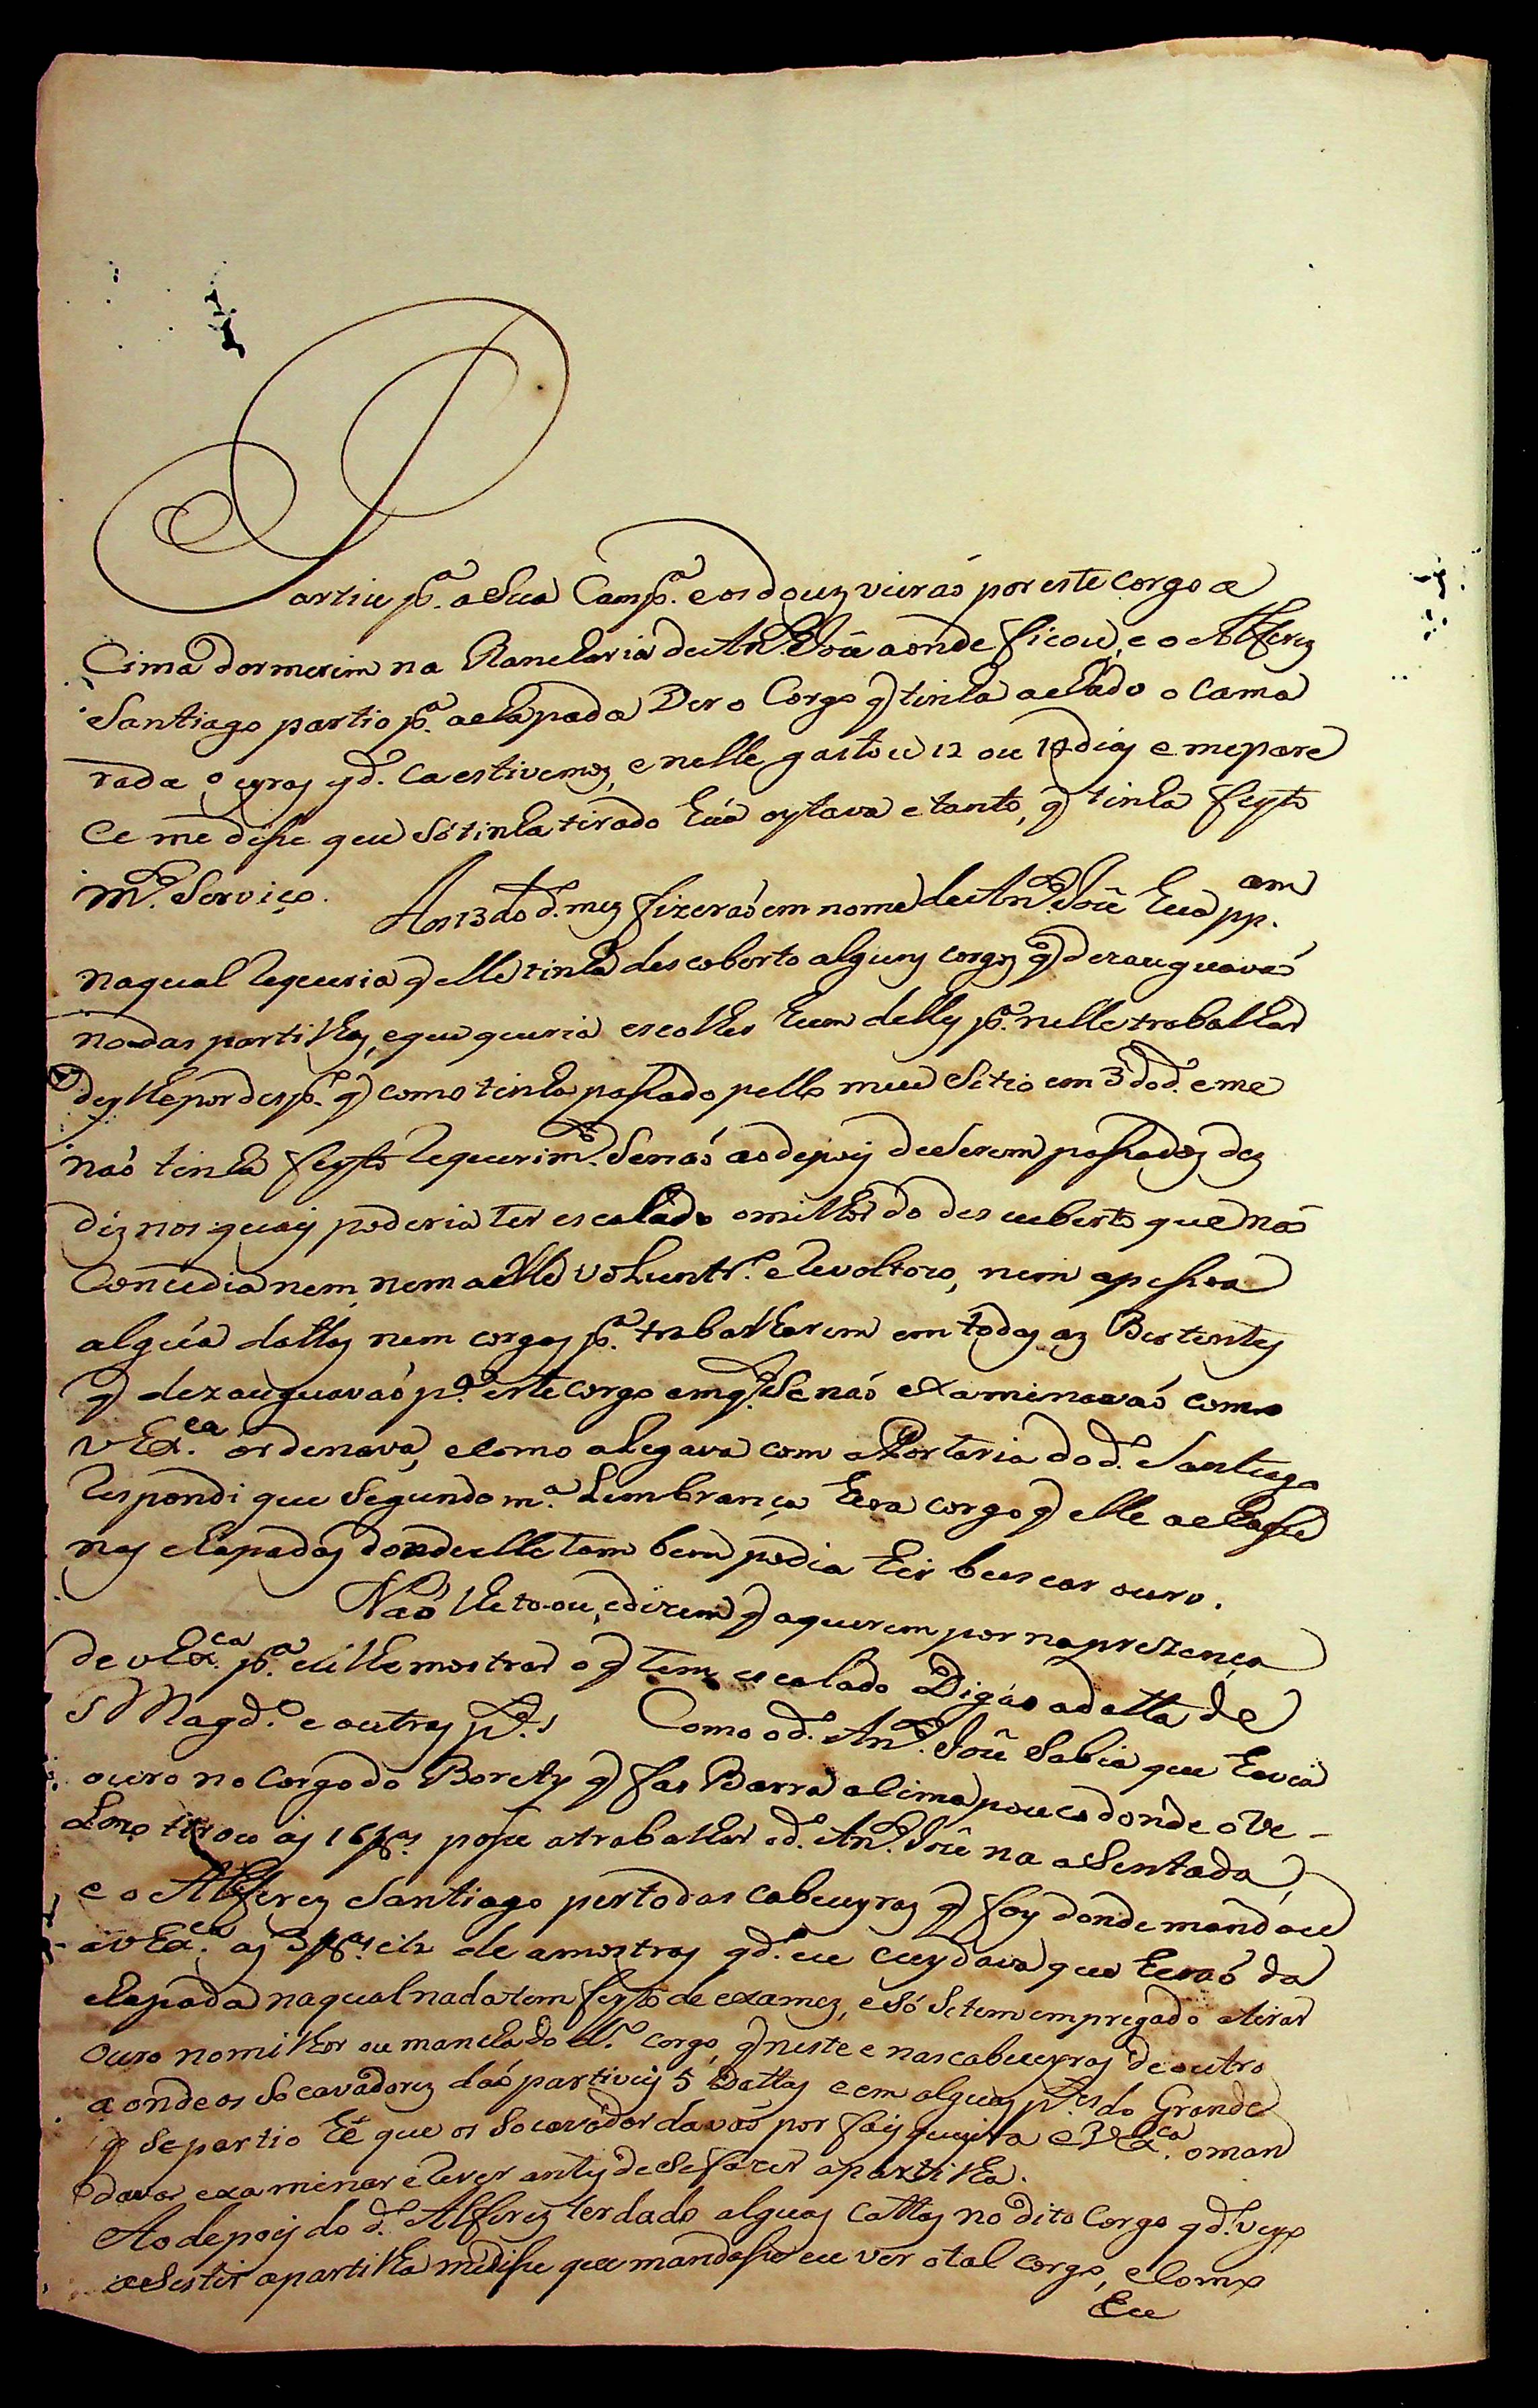 Partiu p.ª a Sua Camp.ª e os douz vieraõ por este corgo a
Cima dormirim na Rancharia de Ant.º Joze aonde ficou, e o Alferez
Santiago partio p.ª a chapada Ver o Corgo q̃ tinha achado o Cama
rada o eyras qd.º Ca estivemoz, e nelle gastou 12 ou 14 dias e mepare
Ce me disse que Só tinha tirado hũa oytava e tanto, q̃ tinha feyto
m.to Serviço. Aos 13 do d.º mez fizeraõ em nome de Ant.º Joze hũa pp.am
naqual requeria q̃ elle tinha descoberto alguns corgos q̃ dezauguavaõ
no das partilhas, eque queria escolher hum delles p.ª nelle trabalhar
deylhe por desp.º q̃ como tinha passado pello meu Sitio em 3 do d.º e me
naõ tinha feyto requerim.to Senaõ ao depois de Serem passadoz dez
diz nos quais poderia ter escalado o milhor do descuberto que naõ
Concedia nem, nem a elle voluntr.º e Revoltozo, nem a pessoa
algũa dattas nem corgos p.ª trabalharem em todas az Vertentes
q̃ dezauguavaõ p.ª este corgo emq.to Se naõ examinavaõ como
V Ex.ca ordenava, e como alegava com a Portaria do d.º Santiago
Respondi que Segundo m.ª Lembrança hera corgo q̃ elle achasse
nas chapadas donde elle tambem podia hir buscar ouro.
Naõ lhe to-ou, e dizem q̃ a querem por na prezença
de V Ex.ca p.ª eu lhe mostrar o q̃ tem escalado Digaõ a datta de
S Magd.e e outras p.tes Como o d.º Ant.º Joze Sabia que havia
ouro no Corgo do Borety q̃ fas Barra a Cima pouco donde o Ve-
Lozo tirou as 16/8.as posse a trabalhar o d.º Ant.º Joze na aSentada,
e o Alferez Santiago perto das Cabeceyras q̃ foy donde mandou
a V Ex.ca as 3/8.as e 1/2 de amostras qd.º eu cuydava que heraõ da
chapada naqual nada tem feyto de examez, e Só Se tem empregado a tirar
Ouro no milhor ou manchado d.º corgo, q̃ neste e nas cabeceyras de outro
a onde os Socavadorez daõ partiveis 5 Dattas e em alguas p.tes do Grande
q̃ Separtio hé que os Socavador davaõ por faisqueyra e V Ex.ca o man
dava examinar e Rever antes de Sefazer a partilha.
Ao depois do d.º Alferez ter dado alguas Cattas no dito Corgo qd.º veyo
a Sestir a partilha me disse que mandasse eu ver o tal corgo, e Como
Eu